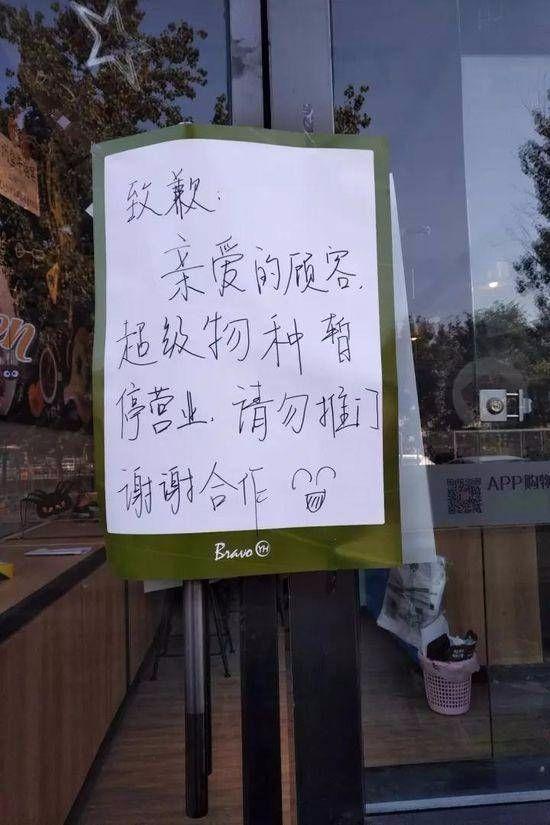 致歉:
亲爱的顾客,
超级物种暂
停营业,请勿推门
谢谢合作
Bravo YH
APP购物
en